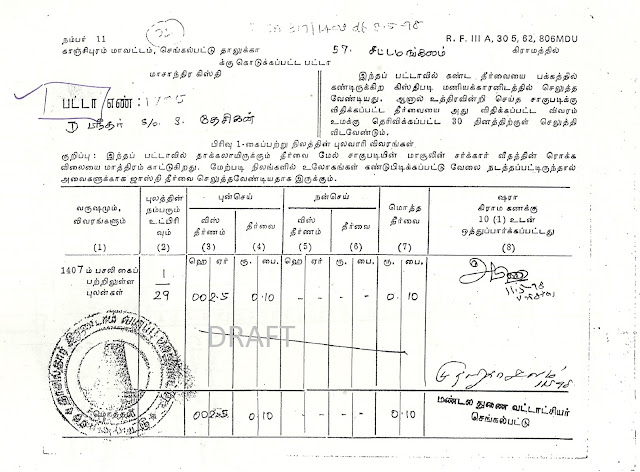 நம்பர் 11
R. F. III A, 30 5, 62, 806MDU
காஞ்சிபுரம் மாவட்டம், செங்கல்பட்டு தாலுக்கா
57. கிராமத்தில்
க்கு கொடுக்கப்பட்ட பட்டா
மாசாந்திர கிஸ்தி
பட்டா எண் :
D ஸ்ரீதர் S/o. தேசிகன்
இந்தப் பட்டாவில் கண்ட தீர்வையை பக்கத்தில்
கண்டிருக்கிற கிஸ்திபடி மணியக்காரனிடத்தில் செலுத்த
வேண்டியது. ஆனால் உத்திரவின்றி செய்த சாகுபடிக்கு
விதிக்கப்பட்ட தீர்வையை அது விதிக்கப்பட்ட விவரம்
உமக்கு தெரிவிக்கப்பட்ட 30 தினத்திற்குள் செலுத்தி
விடவேண்டும்.
பிரிவு 1-கைப்பற்று நிலத்தின் புலவாரி விவரங்கள்.
குறிப்பு : இந்தப் பட்டாவில் தாக்கலாயிருக்கும் தீர்வை மேல் சாகுபடியின் மாசூலின் சர்க்கார் வீதத்தின் ரொக்க
விலையை மாத்திரம் காட்டுகிறது. மேற்படி நிலங்களில் உலோகங்கள் கண்டுபிடிக்கப்பட்டு வேலை நடத்தப்பட்டிருந்தால்
அவைகளுக்காக ஜாஸ்தி தீர்வை செலுத்தவேண்டியதாக இருக்கும்.
வருஷமும், விவரங்களும் (1)
புலத்தின் நம்பரும் உட்பிரிவும் (2)
புன்செய்
விஸ்தீரணம் (3)
தீர்வை (4)
நன்செய்
விஸ்தீரணம் (5)
தீர்வை (6)
மொத்த தீர்வை (7)
ஷரா
கிராம கணக்கு
10 (1) உடன்
ஒத்துப்பார்க்கப்பட்டது
(8)
ஹெ ஏர் ரூ. பை. ஹெ ஏர் ரூ. பை. ரூ. பை.
1407ம் பசலி கைப்
பற்றிலுள்ள
புலன்கள்
1
29
002.5 0.10 - - - - 0.10
11.5-98
DRAFT
002.5 0 10 0 10
மண்டல துணை வட்டாட்சியர்
செங்கல்பட்டு